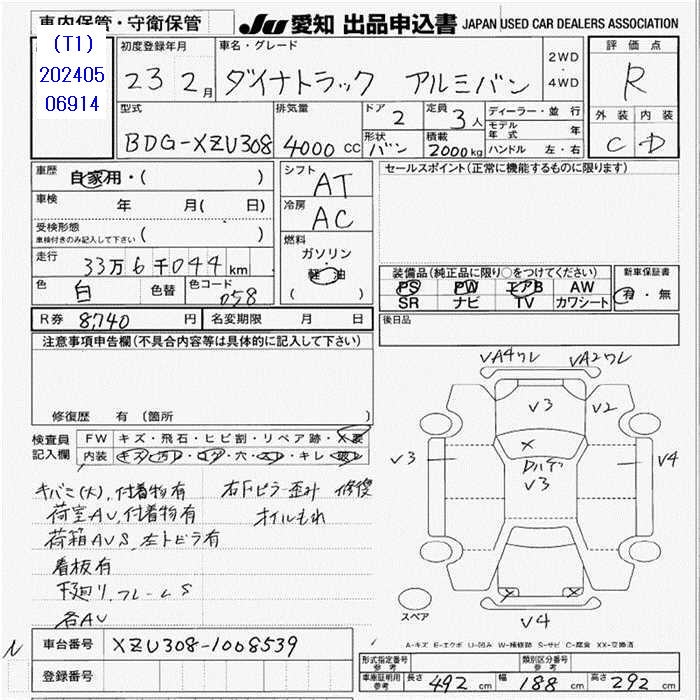 車内保管・守衛保管
JU 愛知 出品申込書 JAPAN USED CAR DEALERS ASSOCIATION
(T1)
202405
06914
初度登録年月
23 2月
車名・グレード
ダイナトラック アルミバン
2WD
・
4WD
評価点
R
外装 内装
C D
型式
BDG-XZU308
排気量
4000 CC
ドア
2
定員
3人
形状
バン
積載
2000kg
ディーラー・並行
モデル年式 年
ハンドル 左・右
車歴
自家用・( )
車検 年 月( 日)
受検形態
車検付きのみ記入して下さい ( )
走行
33万6千044km
色
白
色替
色コード
058
シフト
AT
冷房
AC
燃料
ガソリン
・
軽油
( )
セールスポイント(正常に機能するものに限ります)
装備品(純正品に限り○をつけてください)
PS PW エアB AW
SR ナビ TV カワシート
新車保証書
有・無
R券 8,740 円
名変期限 月 日
後日品
注意事項申告欄(不具合内容等は具体的に記入して下さい)
修復歴 有 (箇所 )
検査員
記入欄
FW キズ・飛石・ヒビ割・リペア跡・X要
内装 キズ・汚レ・コゲ・穴・スレ・キレ・破レ
キバミ(大),付着物有
荷室AU,付着物有
荷箱AUS,左トビラ有
看板有
下廻り,フレームS
各AU
右Fピラー歪み 修復
オイルもれ
VA4ワレ VA2ワレ
V3 V2
X
V3 V4
V3
X X
V4
スペア
A-キズ E-エクボ U-凹み W-補修跡 S-サビ C-腐食 XX-交換済
N
車台番号 XZU308-1008539
登録番号
形式指定番号
参考
類別区分番号
参考
車庫証明用
参考
長さ 492 cm 幅 188 cm 高さ 292 cm